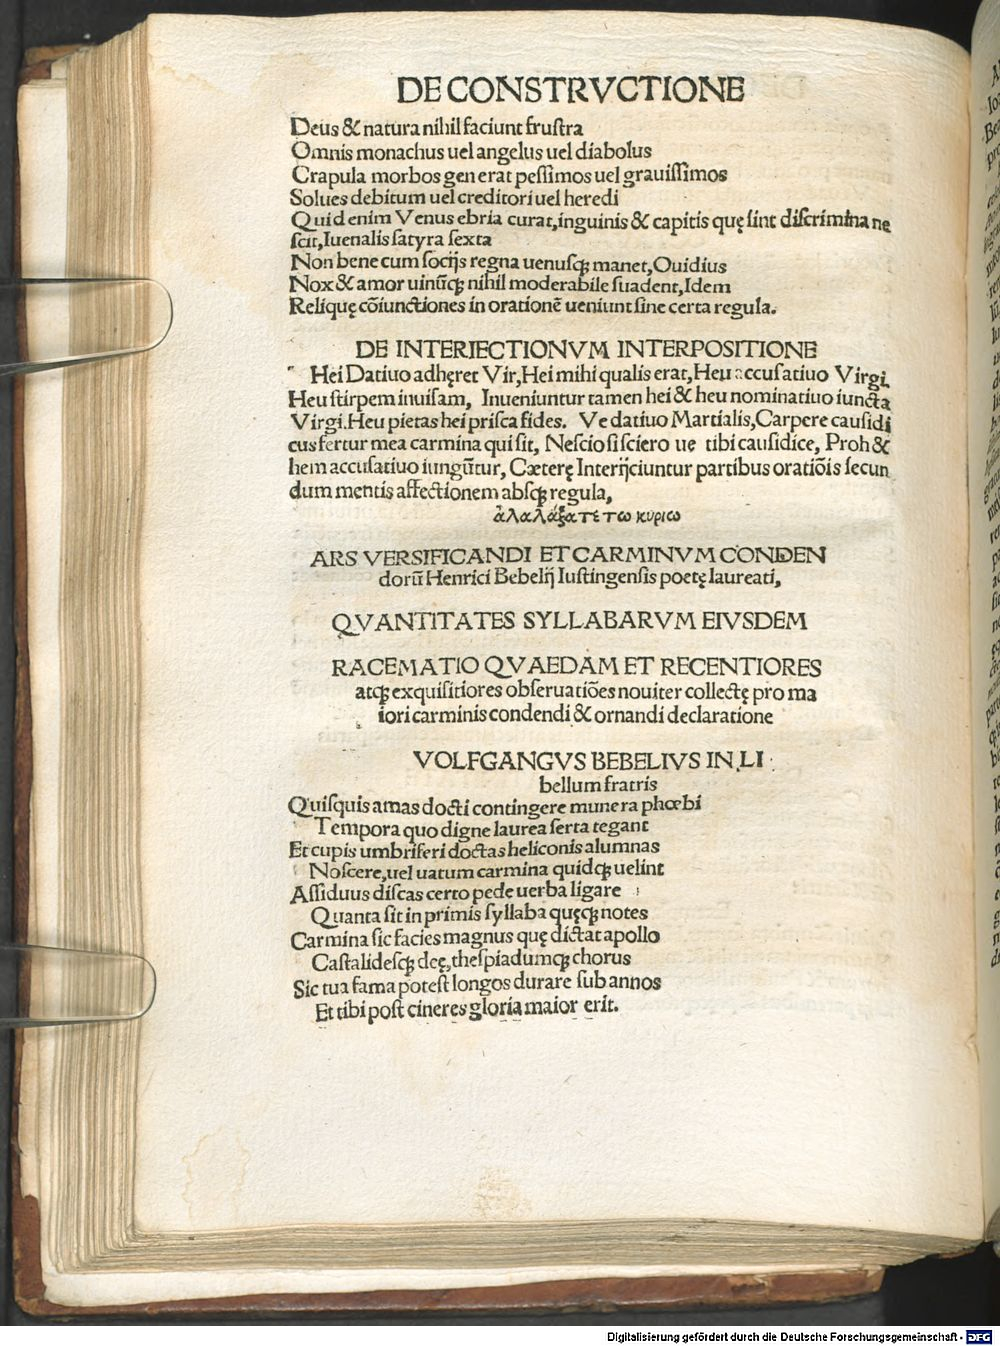 DE CONSTRVCTIONE
Deus & natura nihil faciunt fruſtra
Omnis monachus uel angelus uel diabolus
Crapula morbos generat peſſimos uel grauiſſimos
Solues debitum uel creditori uel heredi
Quid enim Venus ebria curat, inguinis & capitis quę ſint diſcrimina ne
ſcit, Iuenalis ſatyra ſexta
Non bene cum ſocijs regna uenusqꝫ manet, Ouidius
Nox & amor uinūqꝫ nihil moderabile ſuadent, Idem
Reliquę cōiunctiones in orationē ueniunt ſine certa regula.
DE INTERIECTIONVM INTERPOSITIONE
Hei Datiuo adhęret Vir, Hei mihi qualis erat, Heu accuſatiuo Virgi.
Heu ſtirpem inuiſam, Inueniuntur tamen hei & heu nominatiuo iuncta
Virgi. Heu pietas hei priſca fides. Ve datiuo Martialis, Carpere cauſidi
cus fertur mea carmina qui ſit, Neſcio ſi ſciero ue tibi cauſidice, Proh &
hem accuſatiuo iungūtur, Cæterę Interijciuntur partibus oratiōis ſecun
dum mentis affectionem abſqꝫ regula,
ἀλαλάξατε τω κυριω
ARS VERSIFICANDI ET CARMINVM CONDEN
dorū Henrici Bebelij Iuſtingenſis poetę laureati,
QVANTITATES SYLLABARVM EIVSDEM
RACEMATIO QVAEDAM ET RECENTIORES
atqꝫ exquiſitiores obſeruatiōes nouiter collectę pro ma
iori carminis condendi & ornandi declaratione
VOLFGANGVS BEBELIVS IN LI
bellum fratris
Quiſquis amas docti contingere munera phœbi
Tempora quo digne laurea ſerta tegant
Et cupis umbriferi doctas heliconis alumnas
Noſcere, uel uatum carmina quidqꝫ uelint
Aſſiduus diſcas certo pede uerba ligare
Quanta ſit in primis ſyllaba quęqꝫ notes
Carmina ſic facies magnus quę dictat apollo
Caſtalidesqꝫ deę, theſpiadumqꝫ chorus
Sic tua fama poteſt longos durare ſub annos
Et tibi poſt cineres gloria maior erit.
Digitalisierung gefördert durch die Deutsche Forschungsgemeinschaft - DFG